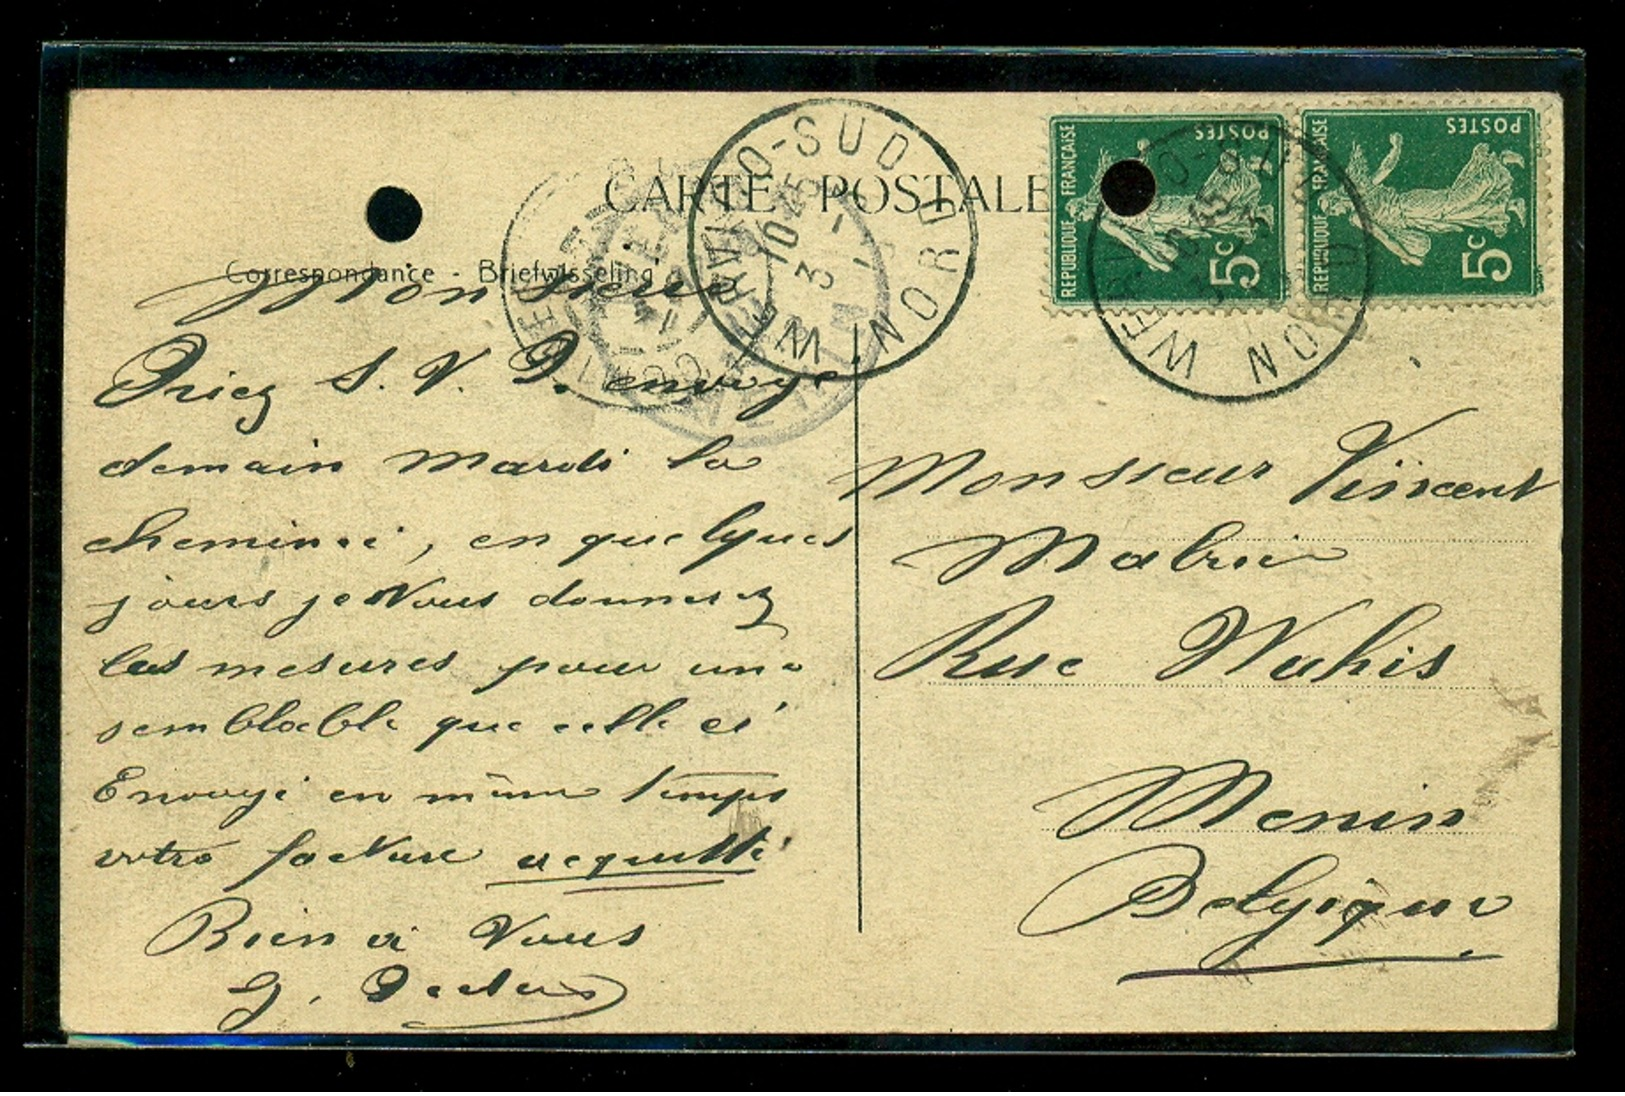 CARTE POSTALE
Correspondance - Briefwisseling
REPUBLIQUE FRANCAISE
POSTES
5c
REPUBLIQUE FRANCAISE
POSTES
5c
WERVICQ-SUD
NORD
10 45
3 -
WERVICQ-SUD
NORD
10 45
Monsieur
Priez S. V. P. envoye
demain mardi la
cheminée, en quelques
jours je vous donnerez
les mesures pour une
semblable que celle ci
Envoyé en même temps
votre facture acquitté
Bien à Vous
G.
Monsieur Vincent
Rue Wahis
Menin
Belgique